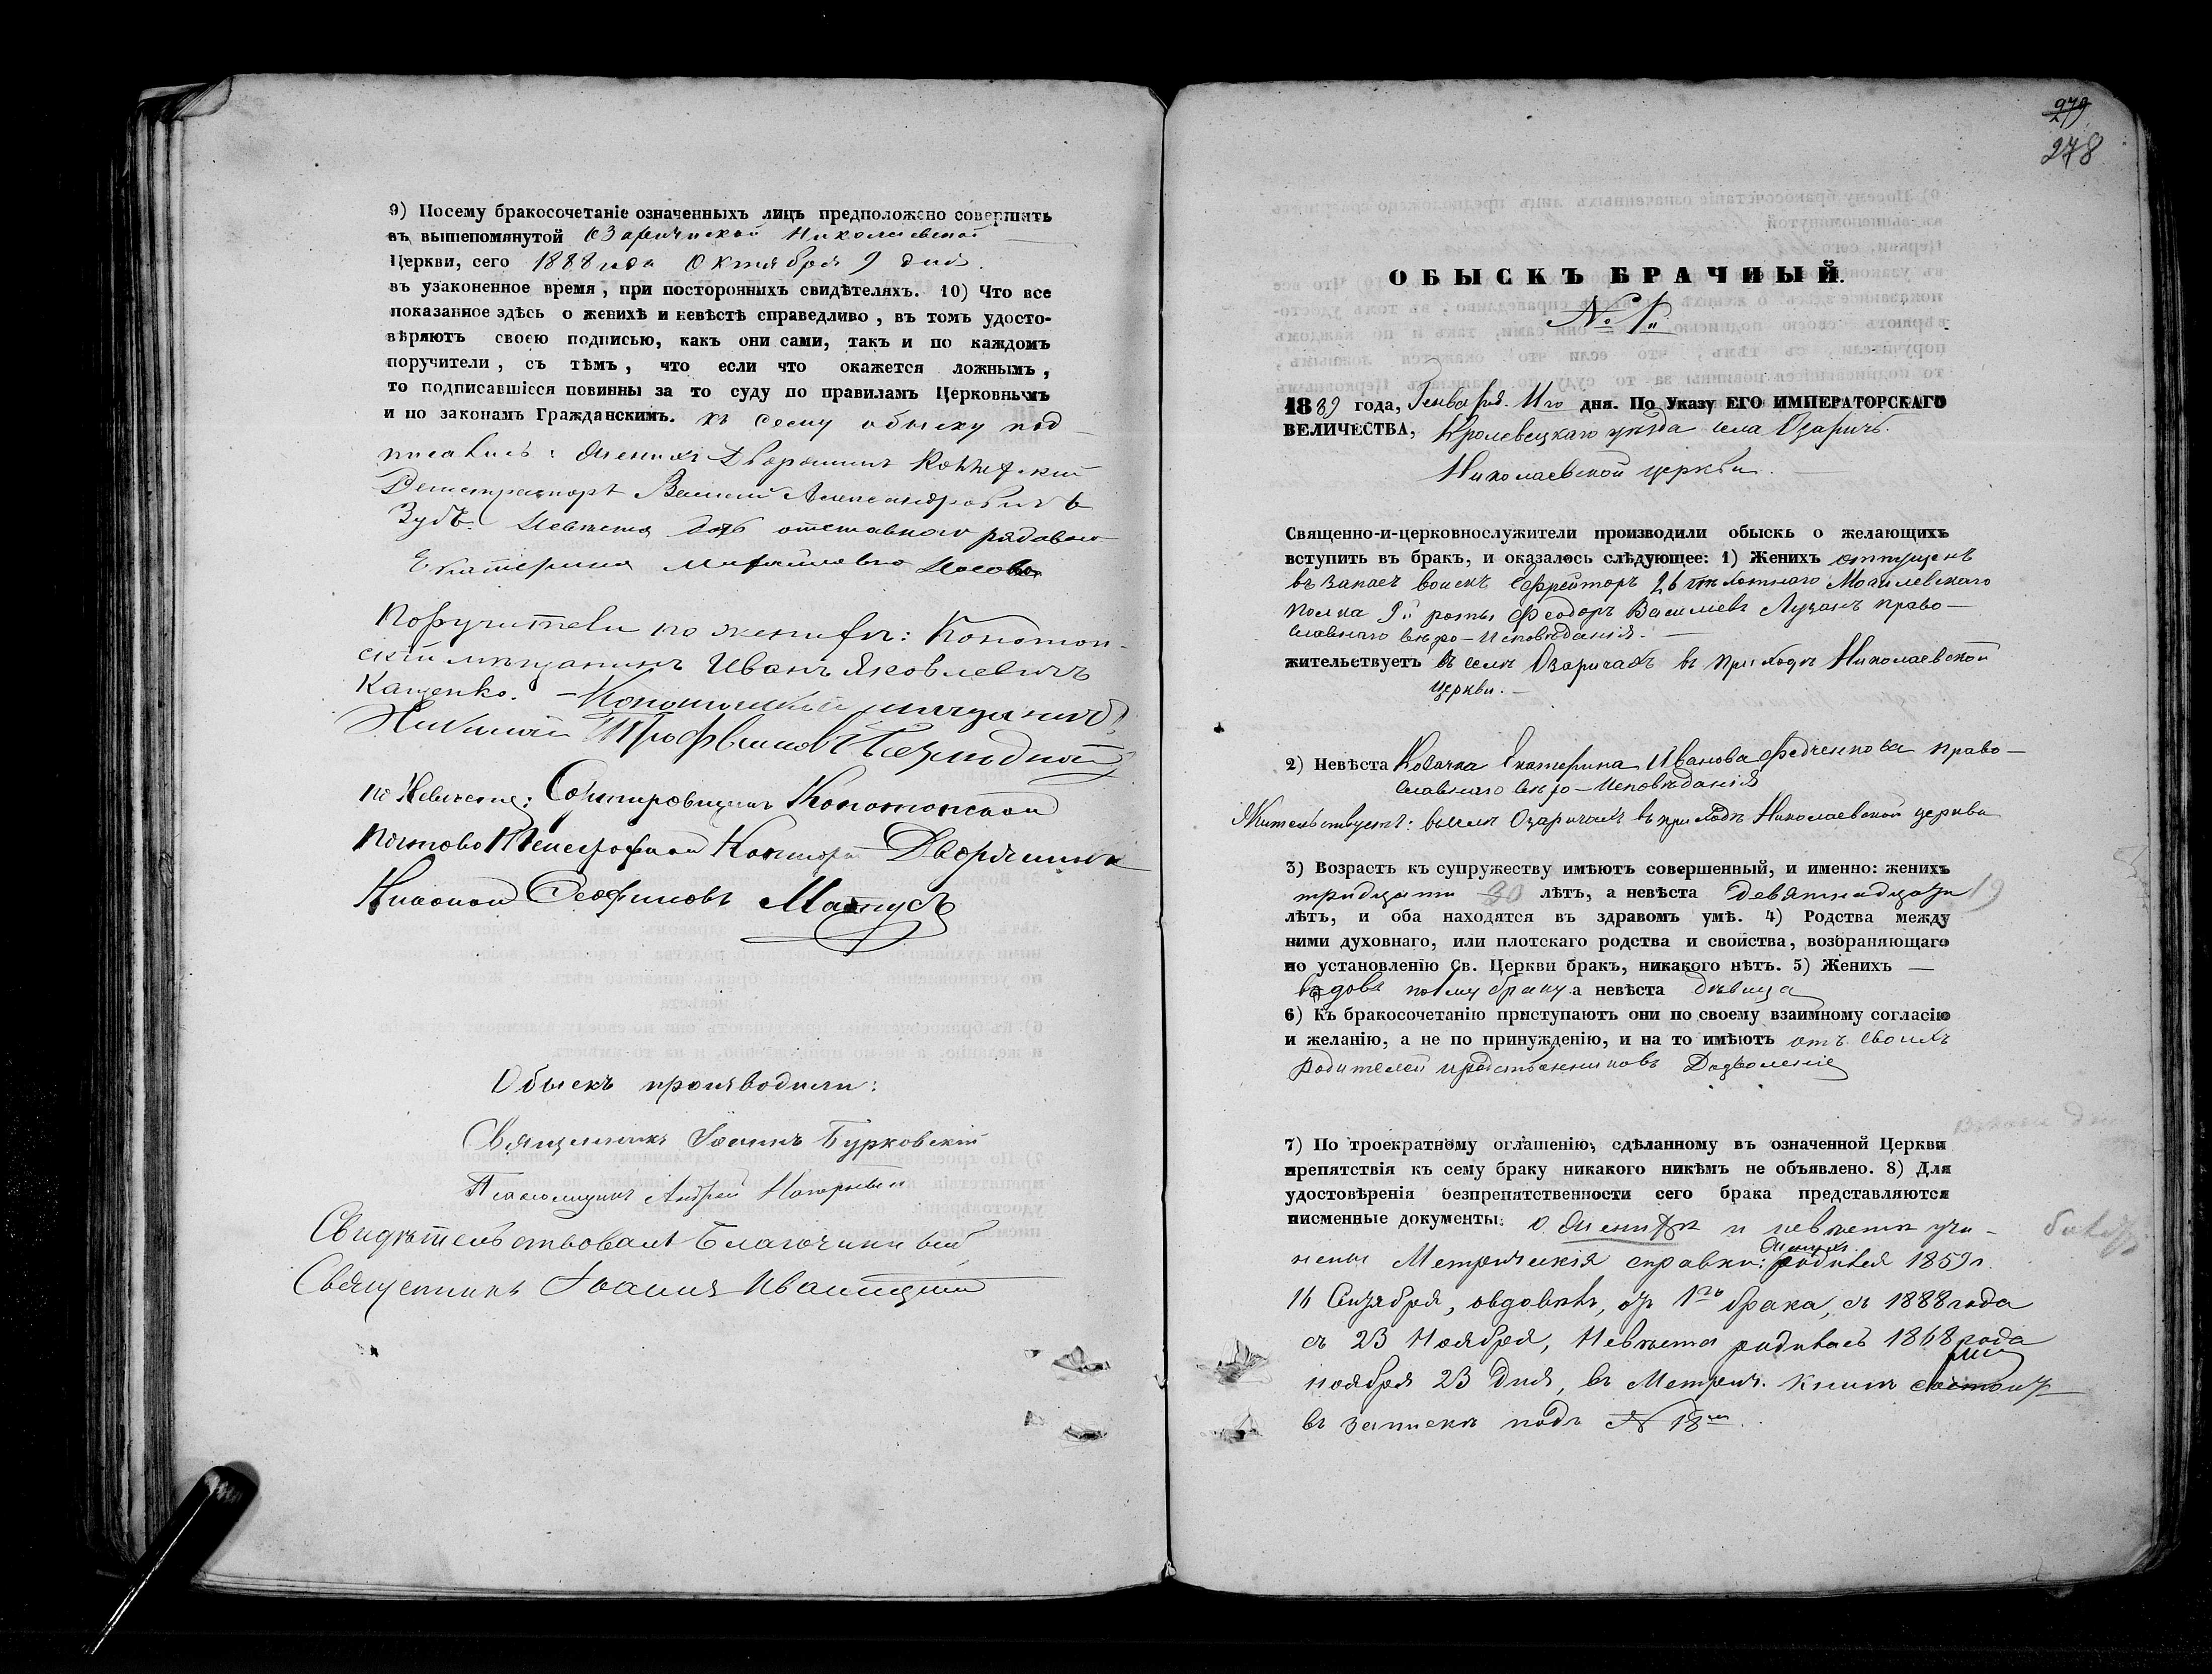 9) Посему бракосочетаніе означенныхъ лицъ предположено совершить
въ вышепомянутой Озаричиской Николаевской
Церкви, сего 1888 года Октября 9 дня.
въ узаконенное время, при постороннихъ свидѣтеляхъ. 10) Что все
показанное здѣсь о женихѣ и невѣстѣ справедливо, въ томъ удосто-
вѣряютъ своею подписью, какъ они сами, такъ и по каждомъ
поручители, съ тѣмъ, что если что окажется ложнымъ,
то подписавшіеся повинны за то суду по правиламъ Церковнымъ
и по законамъ Гражданскимъ. къ сему обыску под-
писались: Женихъ Дворянинъ
Регистраторъ Александровичъ
Зубъ. Невѣста отставного рядового
Екатерина Михайловна Носова
Поручители по женихѣ: Конотоп-
скій мѣщанинъ Иванъ Яковлевичъ
Кащенко. – Конотопскій мѣщанинъ
Николай
по Невѣсте: Конотопской
Почтово Телеграфной Конторы Дворянинъ
Феофиловъ Матусъ
Обыскъ производили:
Священникъ Іоаннъ Бурковскій
Псаломщикъ Андрей
Свидѣтельствовалъ Благочинный
Священникъ Іоаннъ
279
278
ОБЫСКЪ БРАЧНЫЙ.
№ 1.
1889 года, Генваря 11го дня. По Указу ЕГО ИМПЕРАТОРСКАГО
ВЕЛИЧЕСТВА, Кролевецкаго уѣзда села Озаричъ
Николаевской церкви.
Священно-и-церковнослужители производили обыскъ о желающихъ
вступить въ бракъ, и оказалось слѣдующее: 1) Женихъ
въ запасъ войскъ Ефрейторъ 26 пѣхотнаго Могилевскаго
полка 9й роты Феодоръ Васильевъ Лузанъ право-
славнаго вѣро-исповѣданія. –
жительствуетъ въ селѣ Озаричахъ въ приходѣ Николаевской
церкви. –
2) Невѣста Козачка Екатерина Иванова Федченкова право-
славнаго вѣро-исповѣданія
Жительствуетъ: въ селѣ Озаричахъ въ приходѣ Николаевской церкви
3) Возрастъ къ супружеству имѣютъ совершенный, и именно: женихъ
тридцати 30 лѣтъ, а невѣста девятнадцати 19
лѣтъ, и оба находятся въ здравомъ умѣ. 4) Родства между
ними духовнаго, или плотскаго родства и свойства, возбраняющаго
по установленію Св. Церкви бракъ, никакого нѣтъ. 5) Женихъ —
вдовъ по 1му браку а невѣста дѣвица
6) Къ бракосочетанію приступаютъ они по своему взаимному согласію
и желанію, а не по принужденію, и на то имѣютъ отъ своихъ
родителей и родственниковъ Дозволеніе
7) По троекратному оглашенію, сдѣланному въ означенной Церкви
препятствія къ сему браку никакого никѣмъ не объявлено. 8) Для
удостовѣренія безпрепятственности сего брака представляются
писменные документы: о женихѣ и невѣстѣ учи-
нены Метрическія справки: Женихъ родился 1859 г.
16 Сентября, овдовѣлъ, отъ 1го брака, съ 1888 года
съ 23 Ноября, Невѣста родилась 1868 года
ноября 23 дня, въ Метрич. книгѣ
въ запискѣ подъ № 18м.